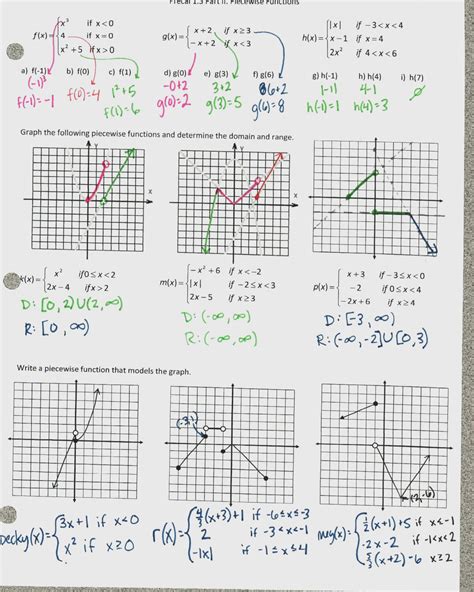 Precal 1.3 Part II: Piecewise Functions
f(x)= { x³ if x<0
4 if x=0
x² + 5 if x>0
g(x)= { x+2 if x≥3
-x+2 if x<3
h(x)= { |x| if -3<x<4
x-1 if x=4
2x² if 4<x<6
a) f(-1) b) f(0) c) f(1) d) g(0) e) g(3) f) g(6) g) h(-1) h) h(4) i) h(7)
(-1)³ 1²+5 -0+2 3+2 6+2 |-1| 4-1 ∅
f(-1)=-1 f(0)=4 f(1)=6 g(0)=2 g(3)=5 g(6)=8 h(-1)=1 h(4)=3
Graph the following piecewise functions and determine the domain and range.
y x
y x
k(x)= { x² if 0≤x<2
2x-4 if x>2
D: [0,2)U(2,∞)
R: [0,∞)
m(x)= { -x²+6 if x<-2
|x| if -2≤x<3
2x-5 if x≥3
D: (-∞,∞)
R: (-∞,∞)
p(x)= { x+3 if -3≤x<0
-2 if 0≤x<4
-2x+6 if x≥4
D: [-3,∞)
R: (-∞,-2]U[0,3)
Write a piecewise function that models the graph.
(-3,1)
(2,-6)
becky(x)= { 3x+1 if x<0
x² if x≥0
r(x)= { 4/3(x+3)+1 if -6≤x≤-3
2 if -3<x<-1
-|x| if -1≤x≤4
meg(x)= { 1/2(x+1)+5 if x<-1
-2x-2 if -1<x<2
5/3(x+2)-6 x≥2